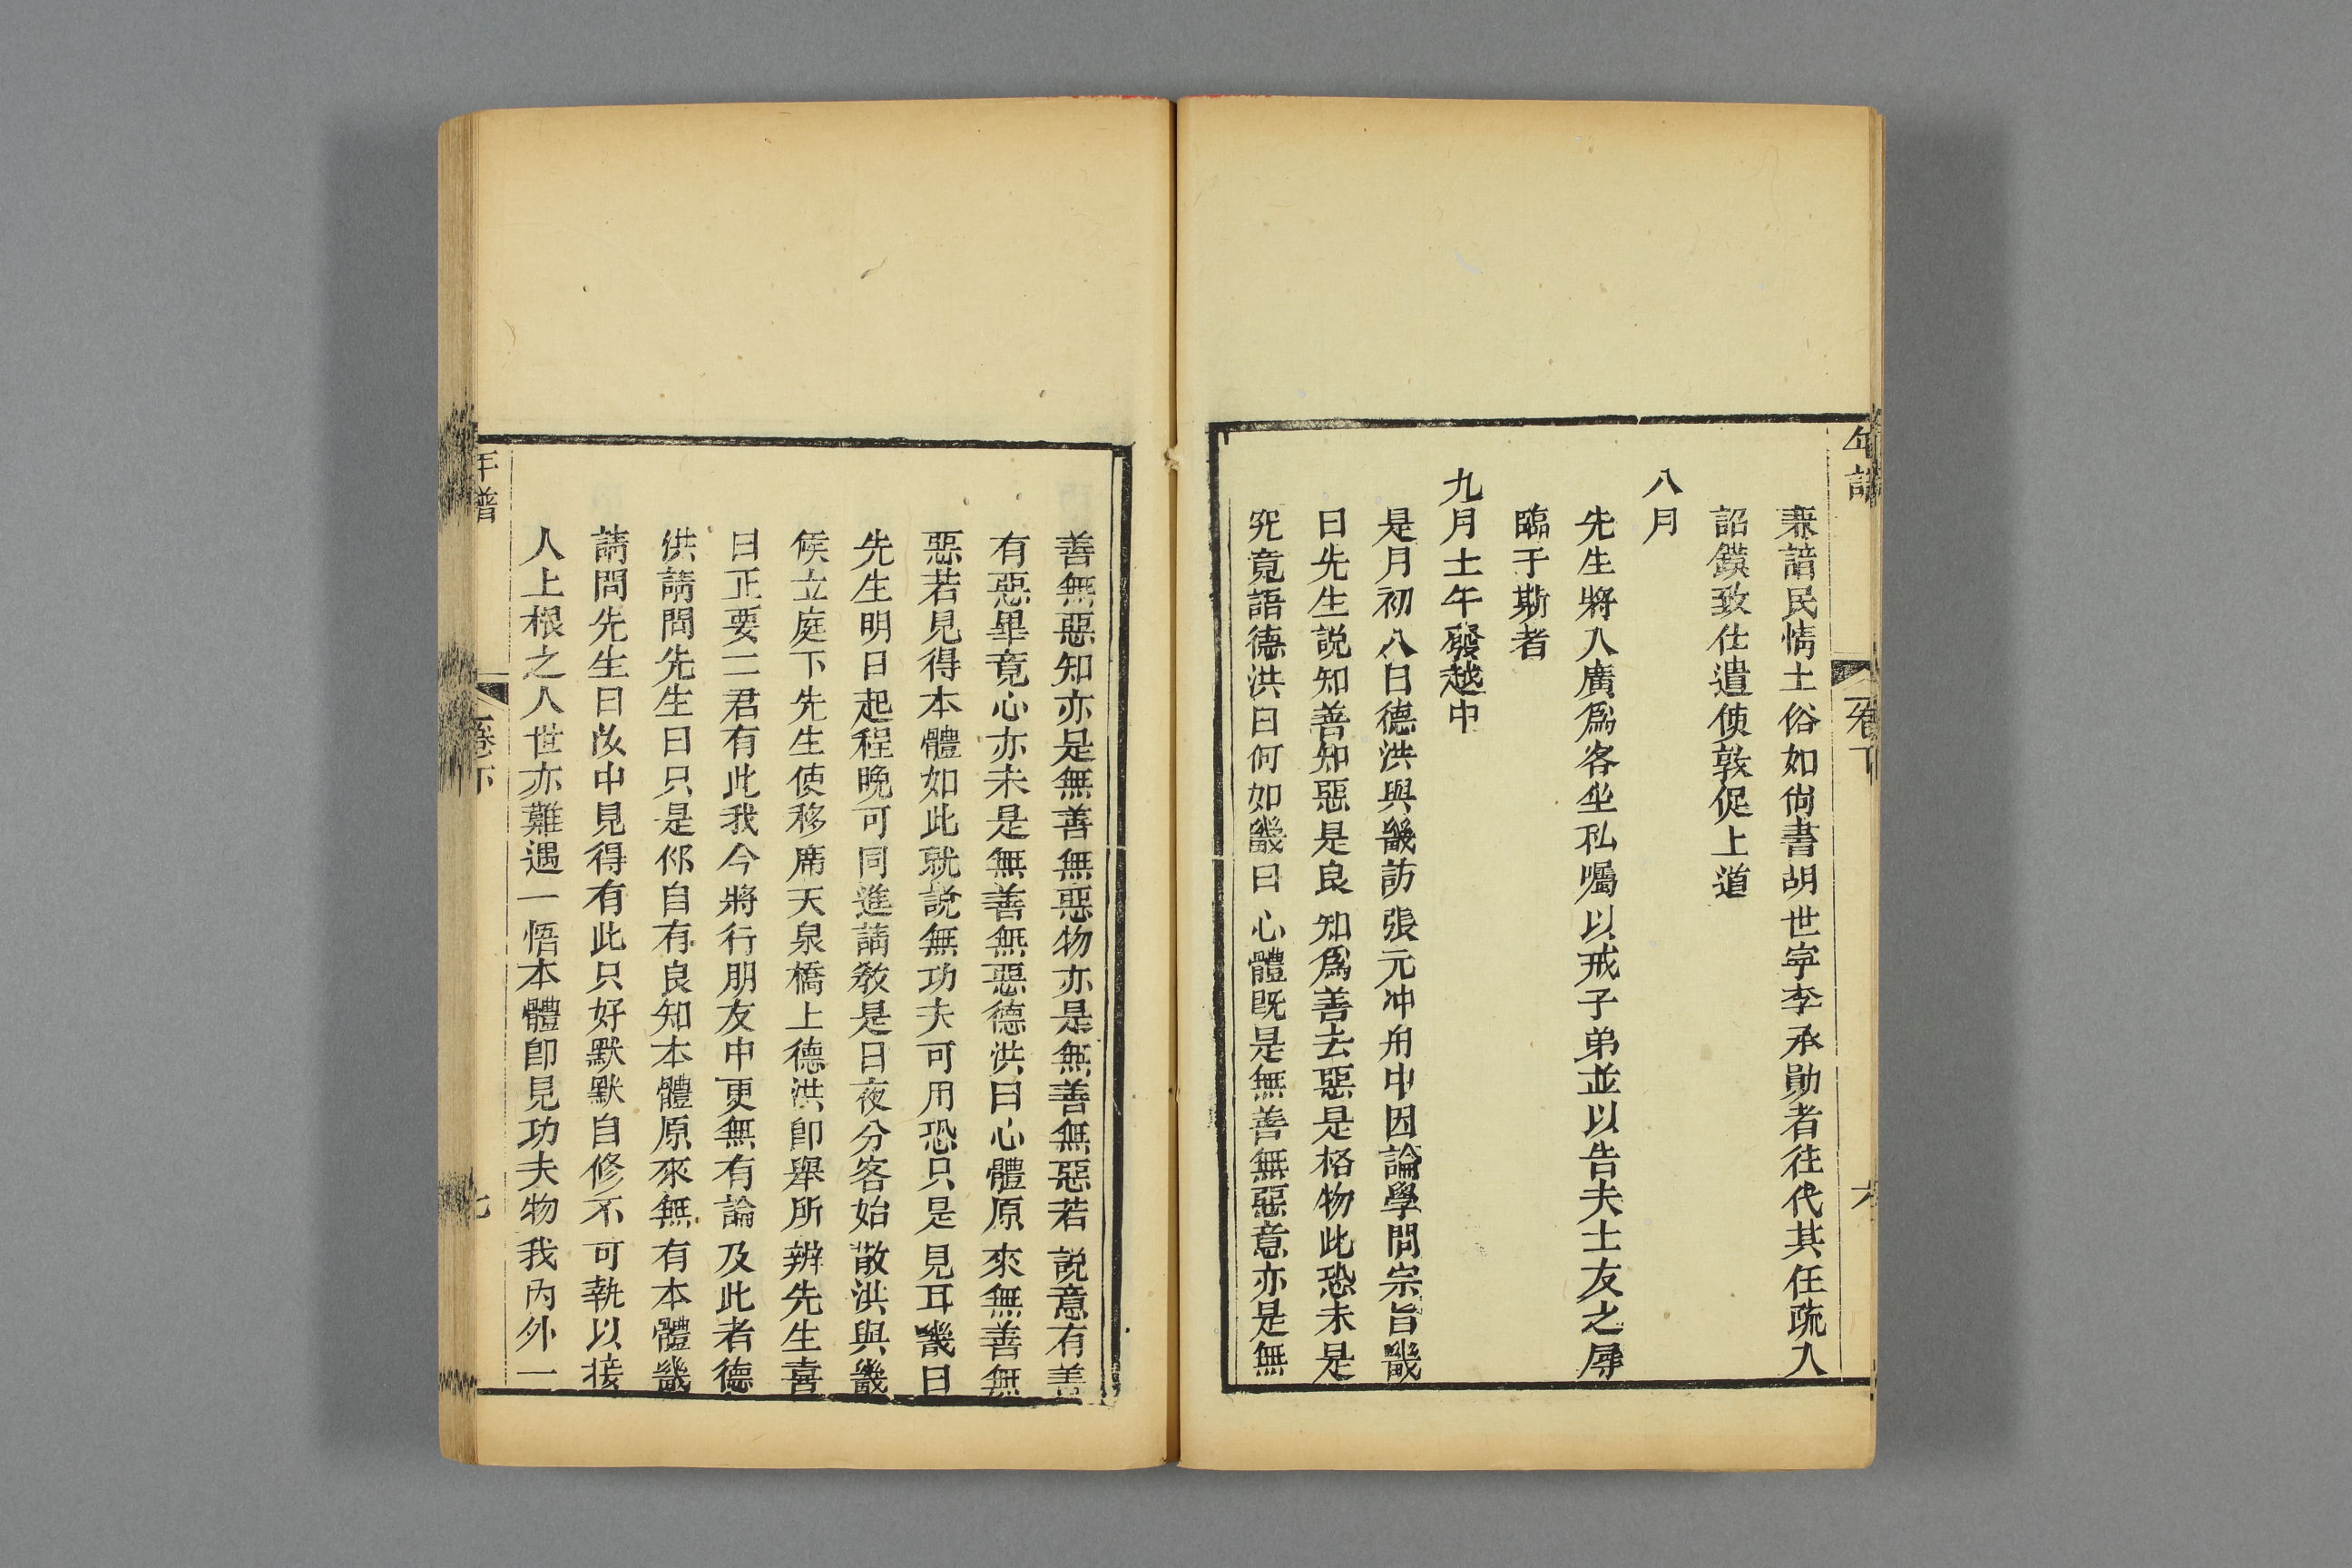 年譜 卷下 六
素諳民情土俗如尙書胡世寧李承勛者往代其任疏入
詔鏌致仕遣使敦促上道
八月
先生將入廣爲客坐私囑以戒子弟並以告夫士友之辱
臨于斯者
九月壬午發越中
是月初八日德洪與畿訪張元冲舟中因論學問宗旨畿
曰先生說知善知惡是良知爲善去惡是格物此恐未是
究竟語德洪曰何如畿曰心體旣是無善無惡意亦是無
善無惡知亦是無善無惡物亦是無善無惡若說意有善
有惡畢竟心亦未是無善無惡德洪曰心體原來無善無
惡若見得本體如此就說無功夫可用恐只是見耳畿曰
先生明日起程晚可同進請教是日夜分客始散洪與畿
候立庭下先生使移席天泉橋上德洪卽舉所辨先生喜
曰正要二君有此我今將行朋友中更無有論及此者德
洪請問先生曰只是你自有良知本體原來無有本體畿
請問先生曰汝中見得有此只好默默自修不可執以接
人上根之人世亦難遇一悟本體卽見功夫物我內外一
年譜 卷下 七